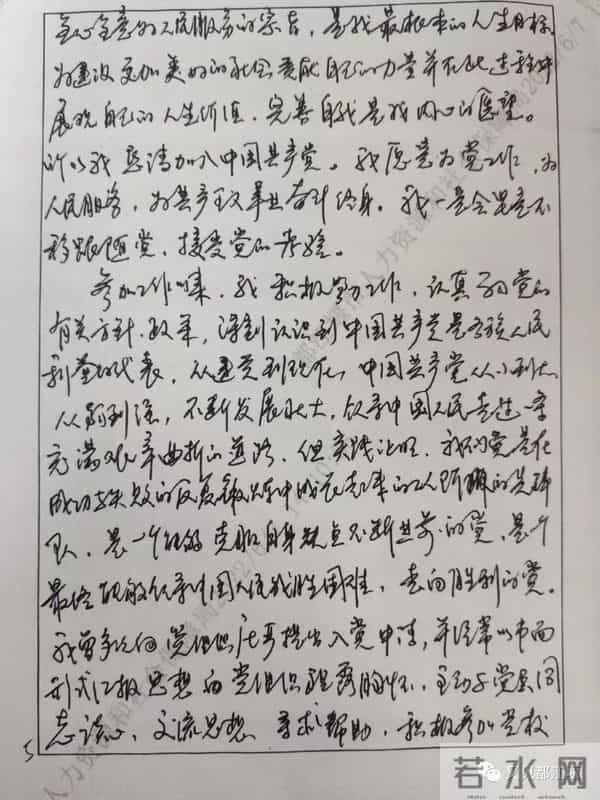 全心全意的人民服务的宗旨，是我最根本的人生目标，
为建设更加美好的社会贡献自己的力量并在此过程中
展现自己的人生价值、完善自我是我内心的愿望。
所以我恳请加入中国共产党。我愿意为党工作，为
人民服务，为共产主义事业奋斗终身。我一定会坚定不
移跟随党，接受党的考验。
参加工作以来，我积极努力工作，认真学习党的
有关方针、政策，深刻认识到中国共产党是各族人民
利益的代表，从建党到现在，中国共产党从小到大，
从弱到强，不断发展壮大，领导中国人民走过一条
充满艰辛曲折的道路，但实践证明，我们党是在
成功与失败的反复锻炼中成长起来的工人阶级的先锋
队，是一个能够克服自身缺点不断进步的党，是个
最终能够领导中国人民战胜困难，走向胜利的党。
我曾多次向党组织庄严提出入党申请，并经常以书面
形式汇报思想向党组织袒露胸怀，主动与党员同
志谈心、交流思想、寻求帮助，积极参加党校
5
若水网